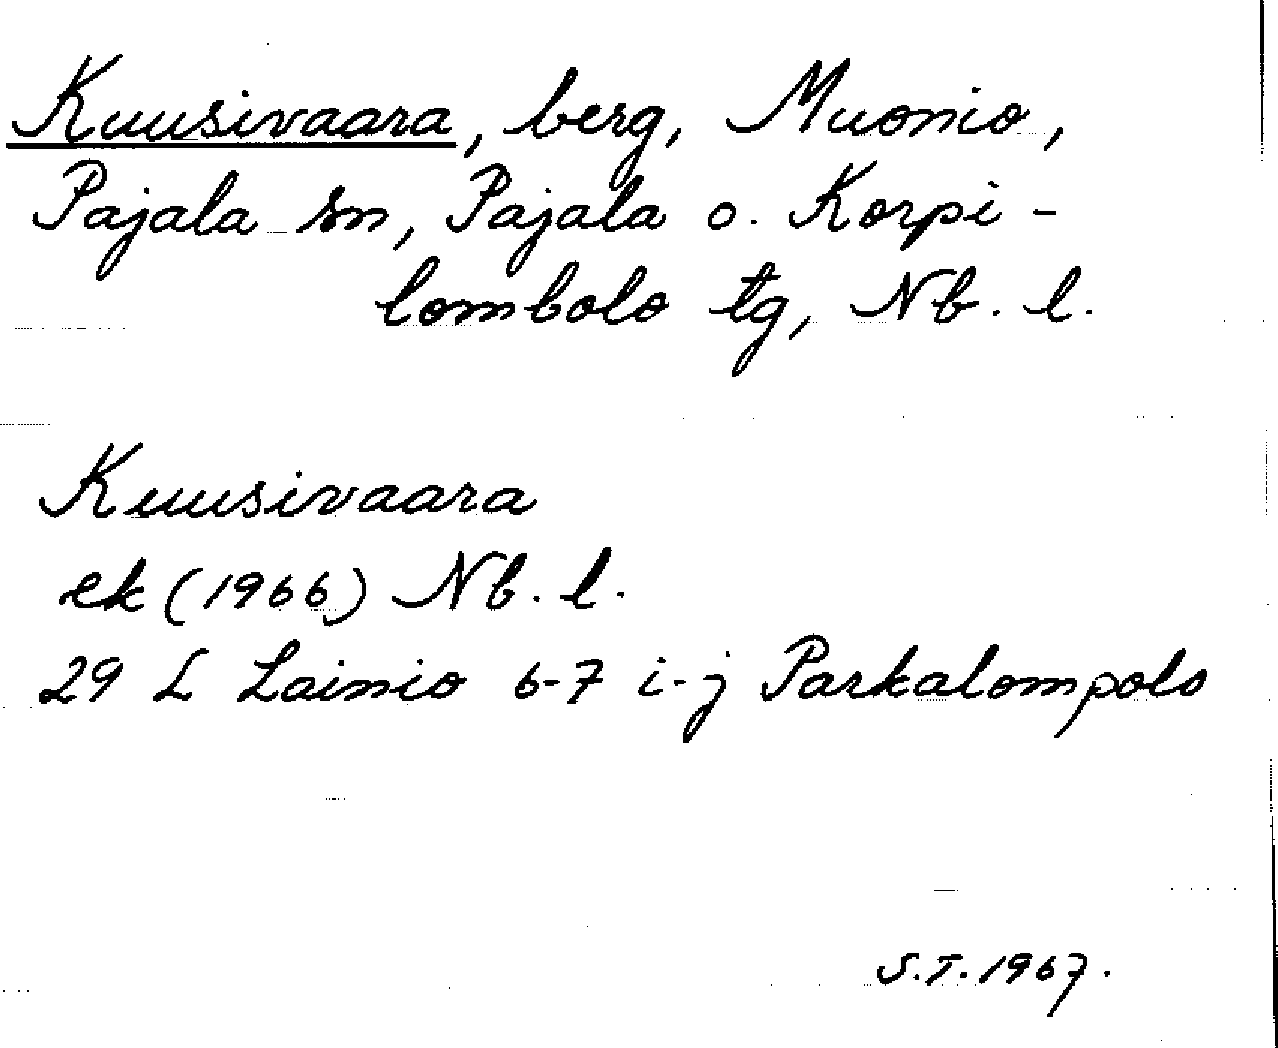 Kuusivaara, berg, Muonio,
Pajala sn, Pajala o. Korpi-
lombolo tg, Nb. l.
Kuusivaara
ek (1966) Nb. l.
29 L Lainio 6-7 i-j Parkalompolo
S.T. 1967.